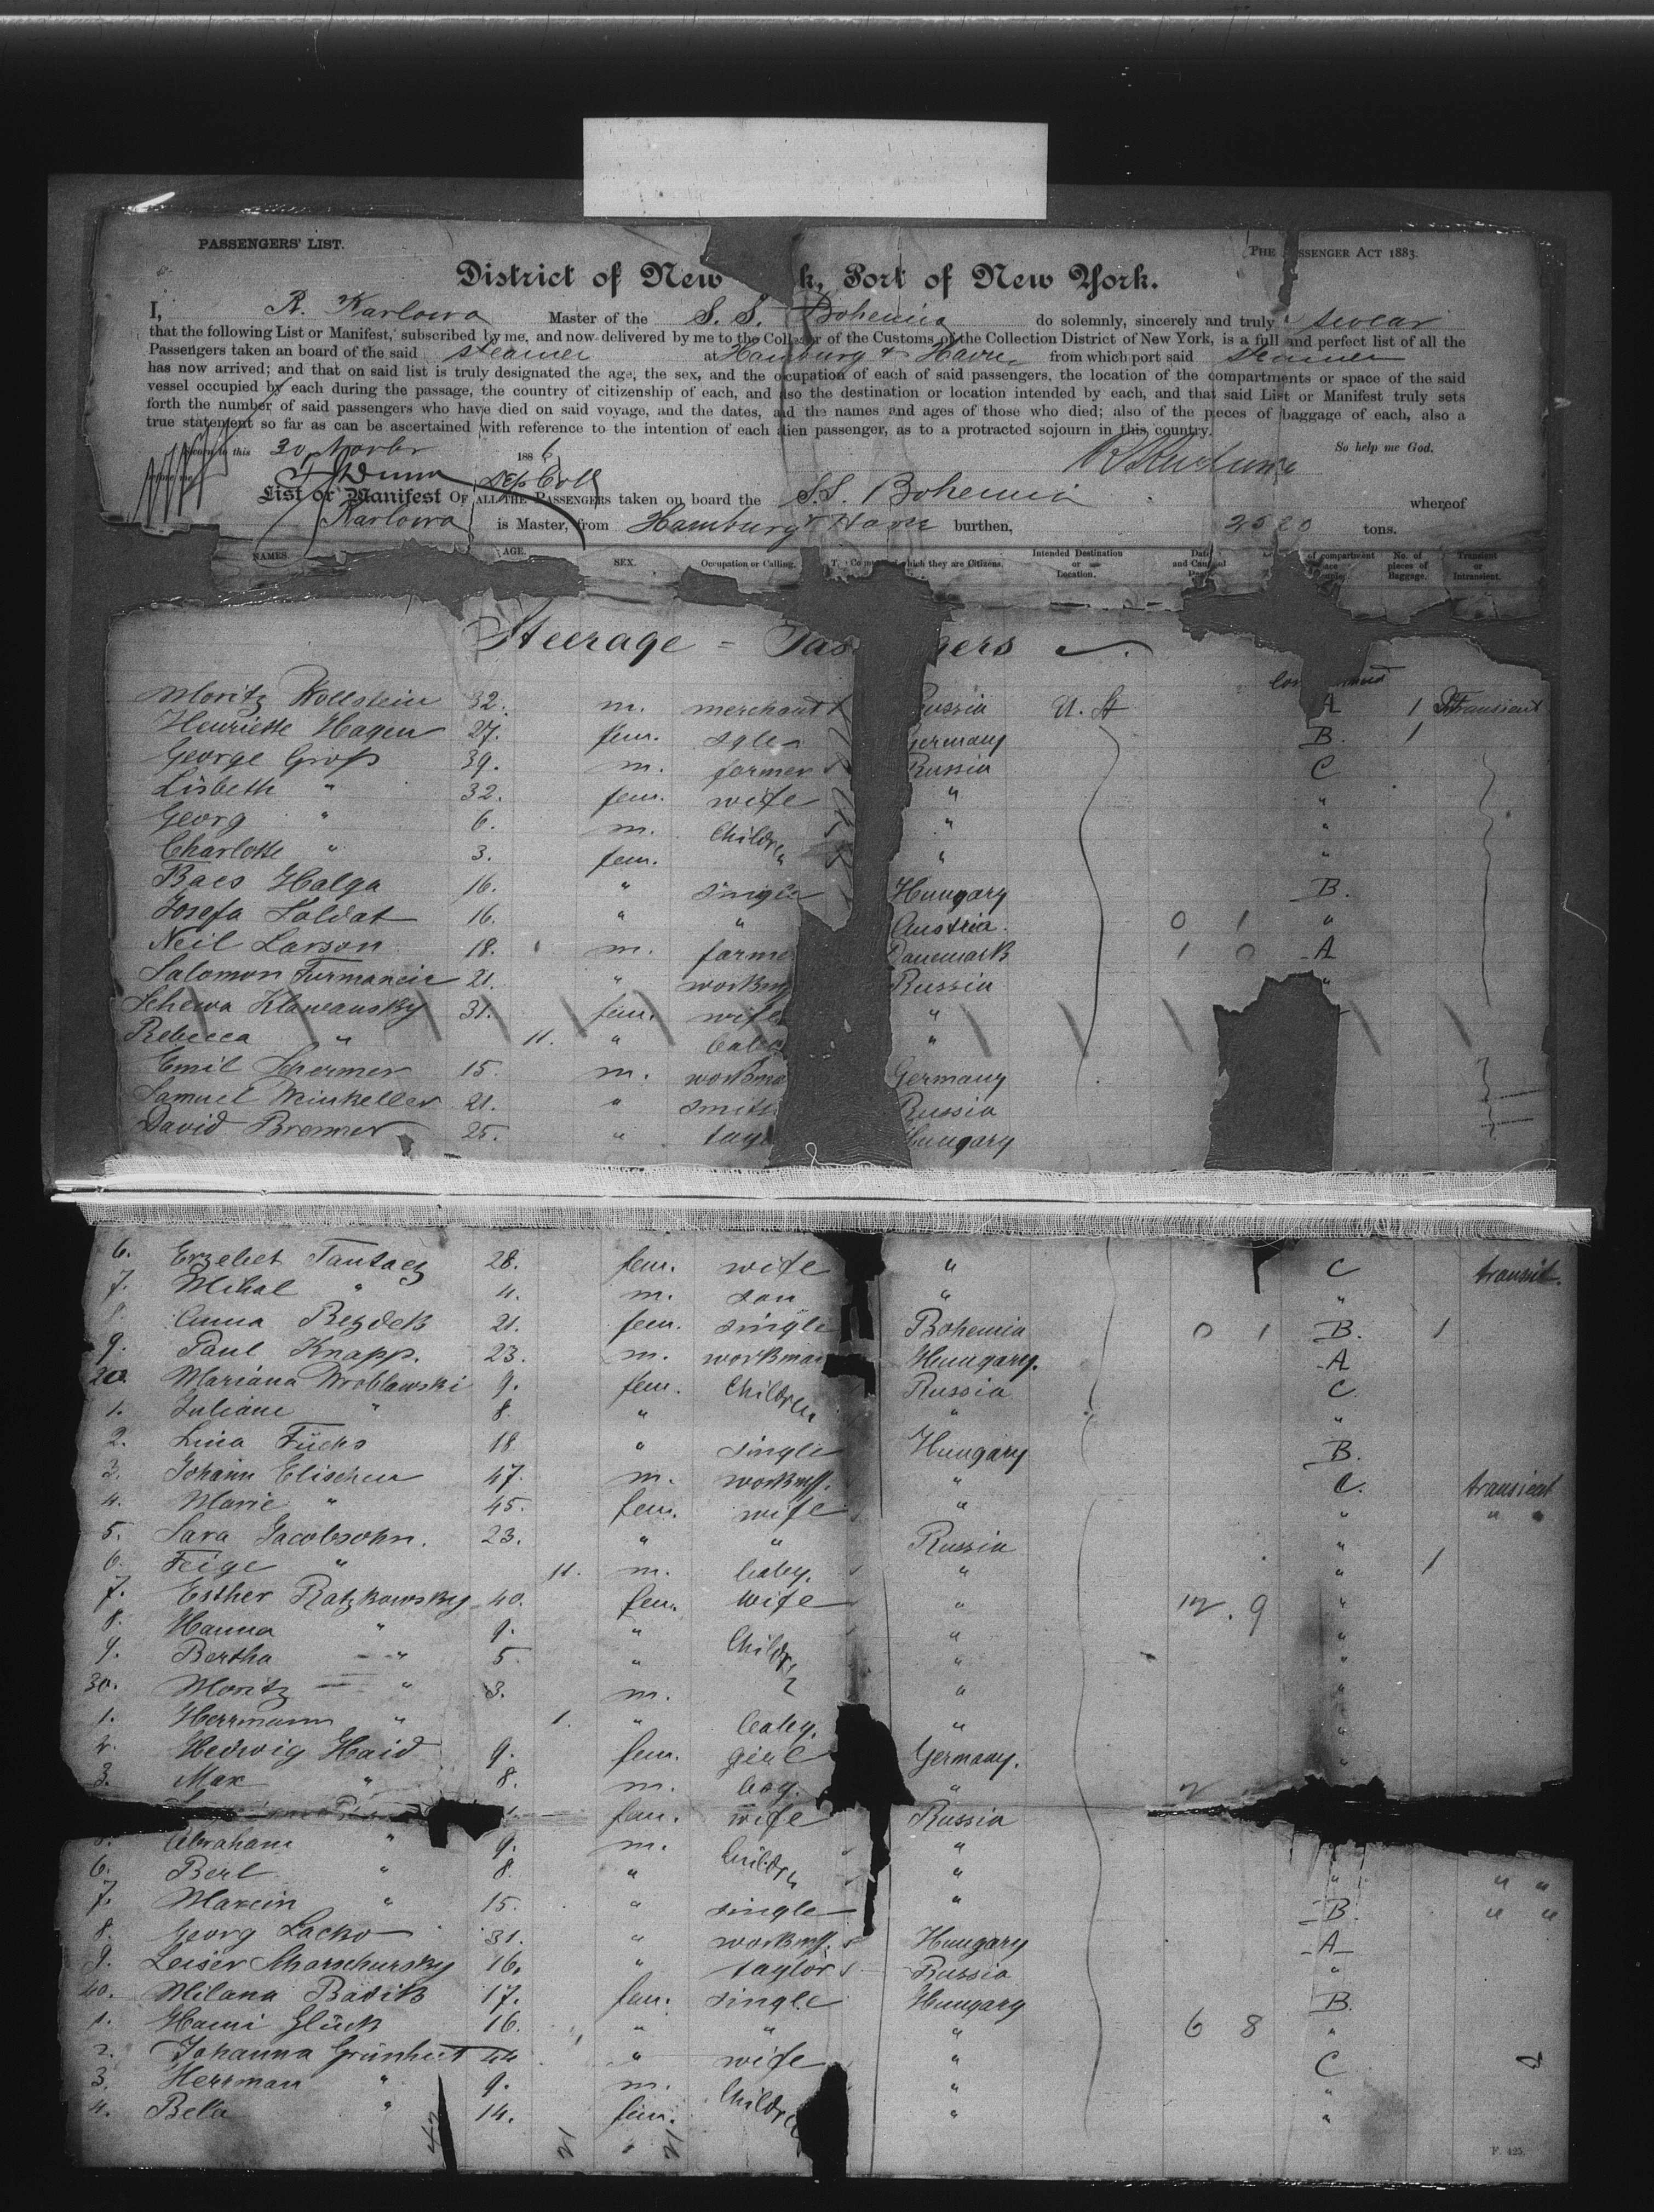 PASSENGERS' LIST.
THE PASSENGER ACT 1883.
District of New k, Port of New York.
I, R. Karlowa Master of the S. S. Bohemia do solemnly, sincerely and truly swear
that the following List or Manifest, subscribed by me, and now delivered by me to the Collector of the Customs of the Collection District of New York, is a full and perfect list of all the
Passengers taken an board of the said steamer at Hamburg & Havre from which port said steamer
has now arrived; and that on said list is truly designated the age, the sex, and the occupation of each of said passengers, the location of the compartments or space of the said
vessel occupied by each during the passage, the country of citizenship of each, and also the destination or location intended by each, and that said List or Manifest truly sets
forth the number of said passengers who have died on said voyage, and the dates, and the names and ages of those who died; also of the pieces of baggage of each, also a
true statement so far as can be ascertained with reference to the intention of each alien passenger, as to a protracted sojourn in this country.
Sworn to this 30 Novbr 1886 So help me God.
List or Manifest OF ALL THE PASSENGERS taken on board the S.S. Bohemia whereof
Karlowa is Master, from Hamburg & Havre burthen, 2520 tons.
NAMES. AGE. SEX. Occupation or Calling. which they are Citizens. Intended Destination or Location. No. of pieces of Baggage. Transient or Intransient.
Steerage = Pas gers
Moritz Wollstein 32. m. merchant Russia U. St A 1 Transient
Henriette Hagen 27. fem. sgle Germany B. 1
George Groß 39. m. farmer Russia C
Lisbeth " 32. fem. wife " "
Georg " 6. m. Children " "
Charlotte " 3. fem. " " "
Baes Halga 16. " single Hungary B.
Josefa Soldat 16. " " Austria. 0 1 "
Neil Larson 18. m. farme Danemark 1 0 A
Salomon Furmancir 21. " workm Russia "
Schewa Klaweansky 31. fem. wife "
Rebecca " 11. " bab "
Emil Schermer 15. m. workma Germany
Samuel Weinkeller 21. " smith Russia
David Brenner 25. " tay Hungary
6. Erzebet Tantacz 28. fem. wife " C transit.
7. Mihal " 4. m. son " "
8. Anna Bezdek 21. fem. single Bohemia 0 1 B. 1
9. Paul Knapp. 23. m. workman Hungary. A
20. Mariana Wroblawski 9. fem. Children Russia C.
1. Juliane " 8. " " "
2. Lina Füchs 18 " single Hungary B.
3. Johann Elischer 47. m. workm. " C. transient
4. Marie " 45. fem. wife " " " "
5. Sara Jacobsohn. 23. " " Russia "
6. Feige " 11. m. baby. " " 1
7. Esther Ratzkowsky 40. fem. wife " 12. 9 "
8. Hanna " 9. " Children " "
9. Bertha " 5. " " "
30. Moritz " 3. m. " "
1. Herrmann " 1. " baby. " "
2. Hedwig Haid 9. fem. girl Germany. "
3. Max " 8. m. boy. " 2
fem. wife Russia
5. Abraham " 9. m. Children "
6. Berl " 8. " " " " "
7. Marcin " 15. " single " B. " "
8. Georg Lacko 31. " workm. Hungary A
9. Leiser Scharschursky 16. " taylor Russia "
40. Milana Badik 17. fem. single Hungary B.
1. Hami Glück 16. " " " 6 8 "
2. Johanna Grünhut 44 " wife " C
3. Herrman " 9. m. Children " "
4. Bela " 14. fem. " "
42 21 21
F. 425.